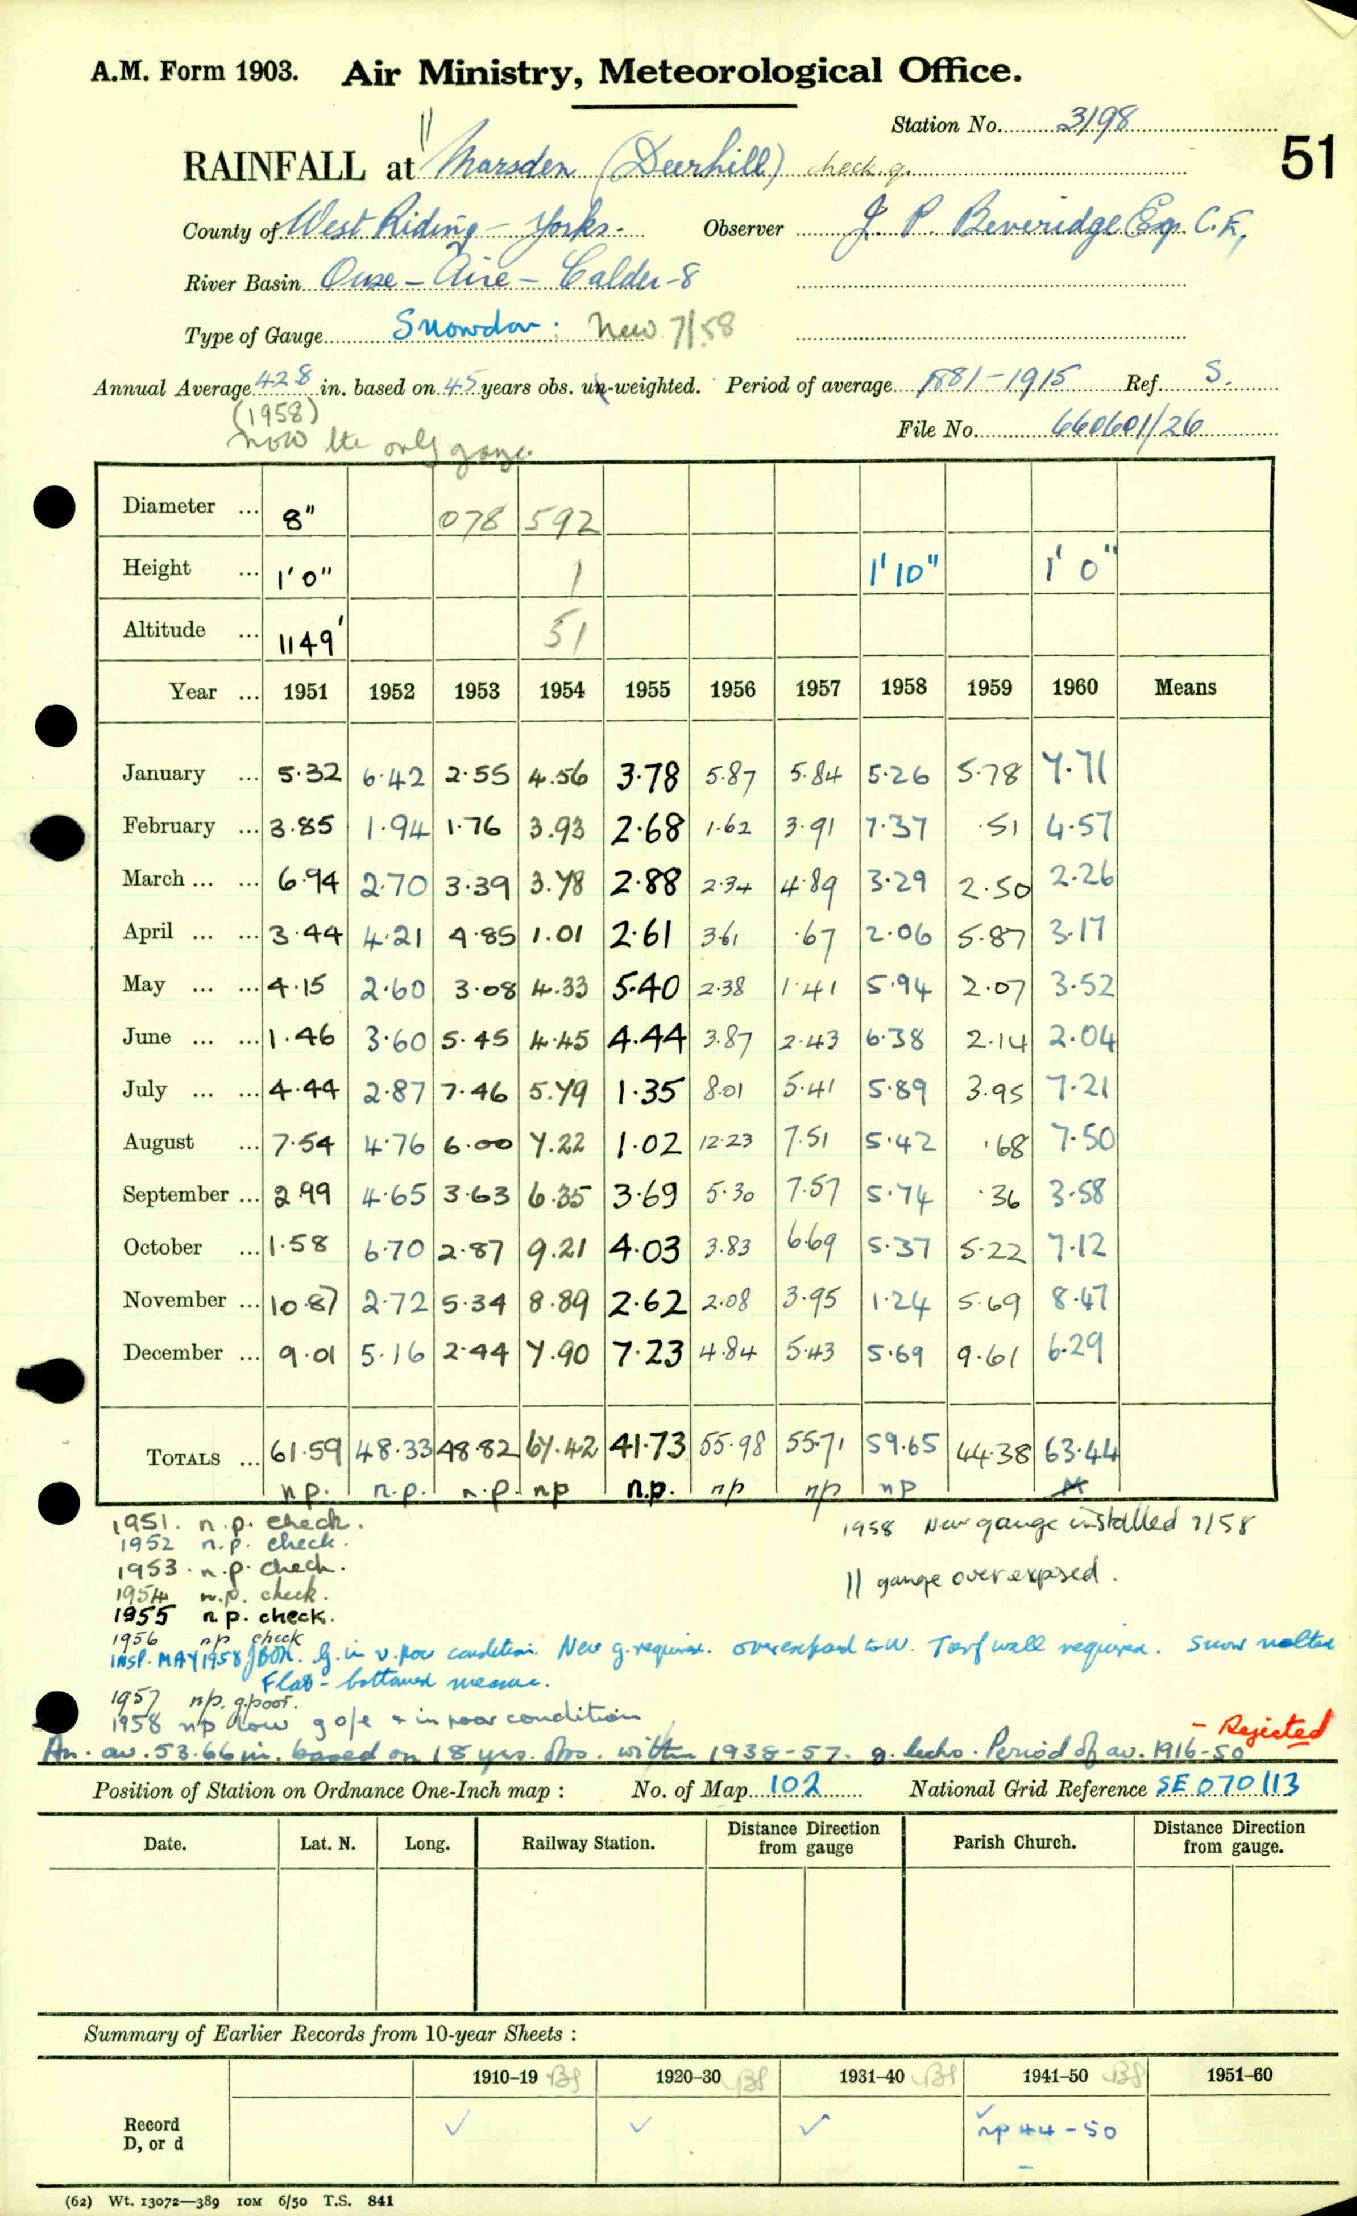 A.M. Form 1903. Air Ministry, Meteorological Office.
Station No. 3198
51
RAINFALL at "Marsden (Deerhill) check g.
County of West Riding - Yorks. Observer J. P. Beveridge Esq. C.E.,
River Basin Ouse - Aire - Calder-8
Type of Gauge Snowdon: New 7/58
Annual Average 42.8 in. based on 45 years obs. un-weighted. Period of average 1881-1915 Ref. S.
(1958)
now the only gauge.
File No. 660601/26
Diameter ... 8" 078 592
Height ... 1' 0" 1 1' 10" 1' 0"
Altitude ... 1149' 51
Year ... 1951 1952 1953 1954 1955 1956 1957 1958 1959 1960 Means
January ... 5.32 6.42 2.55 4.56 3.78 5.87 5.84 5.26 5.78 7.71
February ... 3.85 1.94 1.76 3.93 2.68 1.62 3.91 7.37 .51 4.57
March ... ... 6.94 2.70 3.39 3.78 2.88 2.34 4.89 3.29 2.50 2.26
April ... ... 3.44 4.21 4.85 1.01 2.61 3.61 .67 2.06 5.87 3.17
May ... ... 4.15 2.60 3.08 4.33 5.40 2.38 1.41 5.94 2.07 3.52
June ... ... 1.46 3.60 5.45 4.45 4.44 3.87 2.43 6.38 2.14 2.04
July ... ... 4.44 2.87 7.46 5.79 1.35 8.01 5.41 5.89 3.95 7.21
August ... 7.54 4.76 6.00 7.22 1.02 12.23 7.51 5.42 .68 7.50
September ... 2.99 4.65 3.63 6.35 3.69 5.30 7.57 5.74 .36 3.58
October ... 1.58 6.70 2.87 9.21 4.03 3.83 6.69 5.37 5.22 7.12
November ... 10.87 2.72 5.34 8.89 2.62 2.08 3.95 1.24 5.69 8.47
December ... 9.01 5.16 2.44 7.90 7.23 4.84 5.43 5.69 9.61 6.29
TOTALS ... 61.59 48.33 48.82 67.42 41.73 55.98 55.71 59.65 44.38 63.44
n.p. n.p. n.p. np n.p. np np np
1951. n.p. check.
1952 n.p. check.
1953. n.p. check.
1954 n.p. check.
1955 n.p. check.
1956 np check
1958 New gauge installed 7/58
|| gauge over exposed.
INSP. MAY 1958 g. in v. poor condition. New g. required. overexposed to W. Turf wall required. Snow melted
Flat-bottomed measure.
1957 n/p. g. poor.
1958 np low g o/e + in poor condition
- Rejected
An. av. 53.66 in. based on 18 yrs. obs. within 1938-57. Period of av. 1916-50
Position of Station on Ordnance One-Inch map : No. of Map 102 National Grid Reference SE 070113
Date. Lat. N. Long. Railway Station. Distance from Direction gauge Parish Church. Distance from Direction gauge.
Summary of Earlier Records from 10-year Sheets :
1910-19 1920-30 1931-40 1941-50 1951-60
Record
D, or d ✓ ✓ ✓ ✓ np 44-50
(62) Wt. 13072—389 10M 6/50 T.S. 841